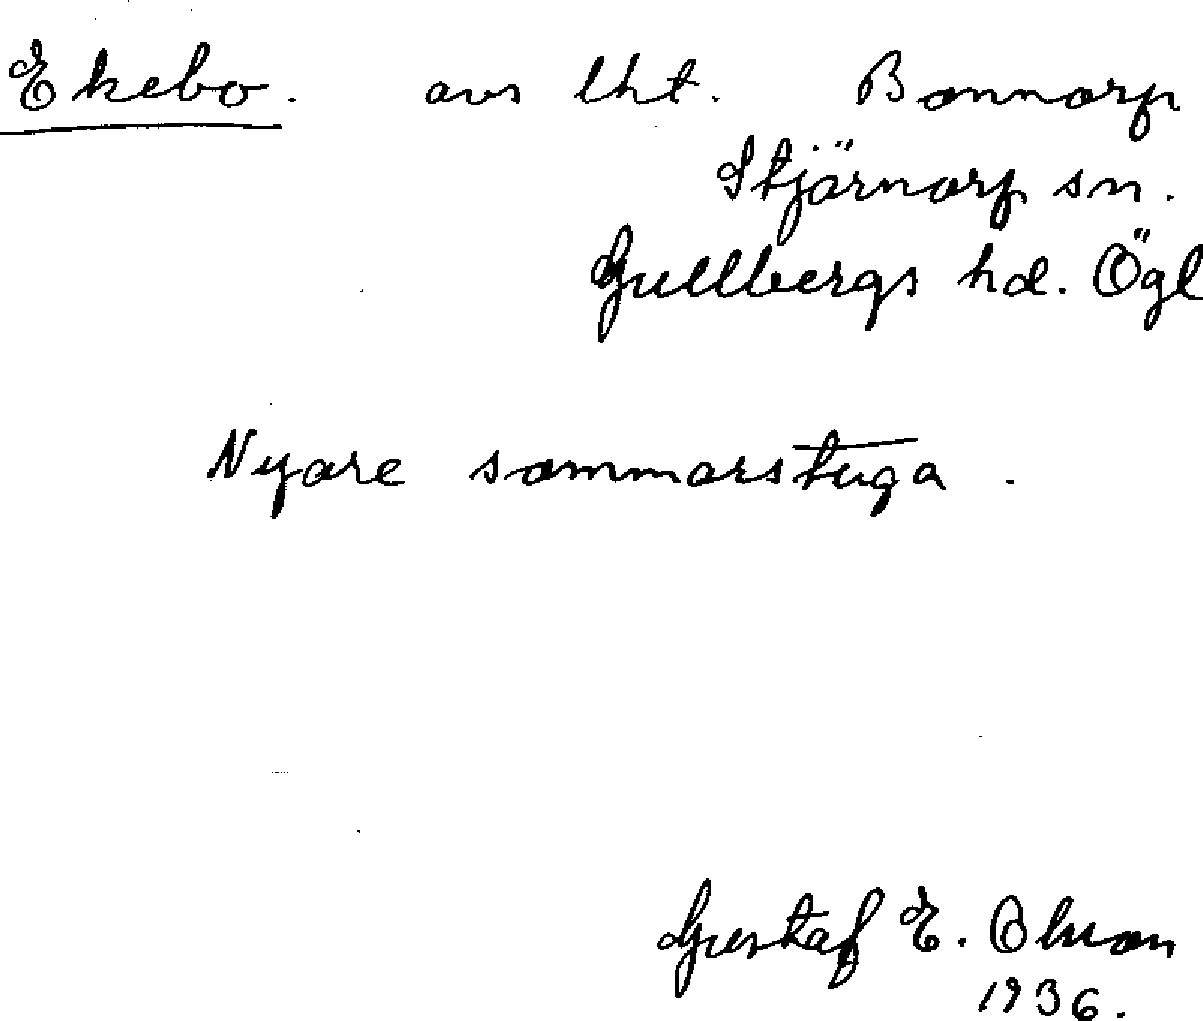 Ekebo. avs lht. Bannarp
Stjärnarp sn.
Gullbergs hd. Ögl
Nyare sommarstuga.
Gustaf E. Olsson
1936.